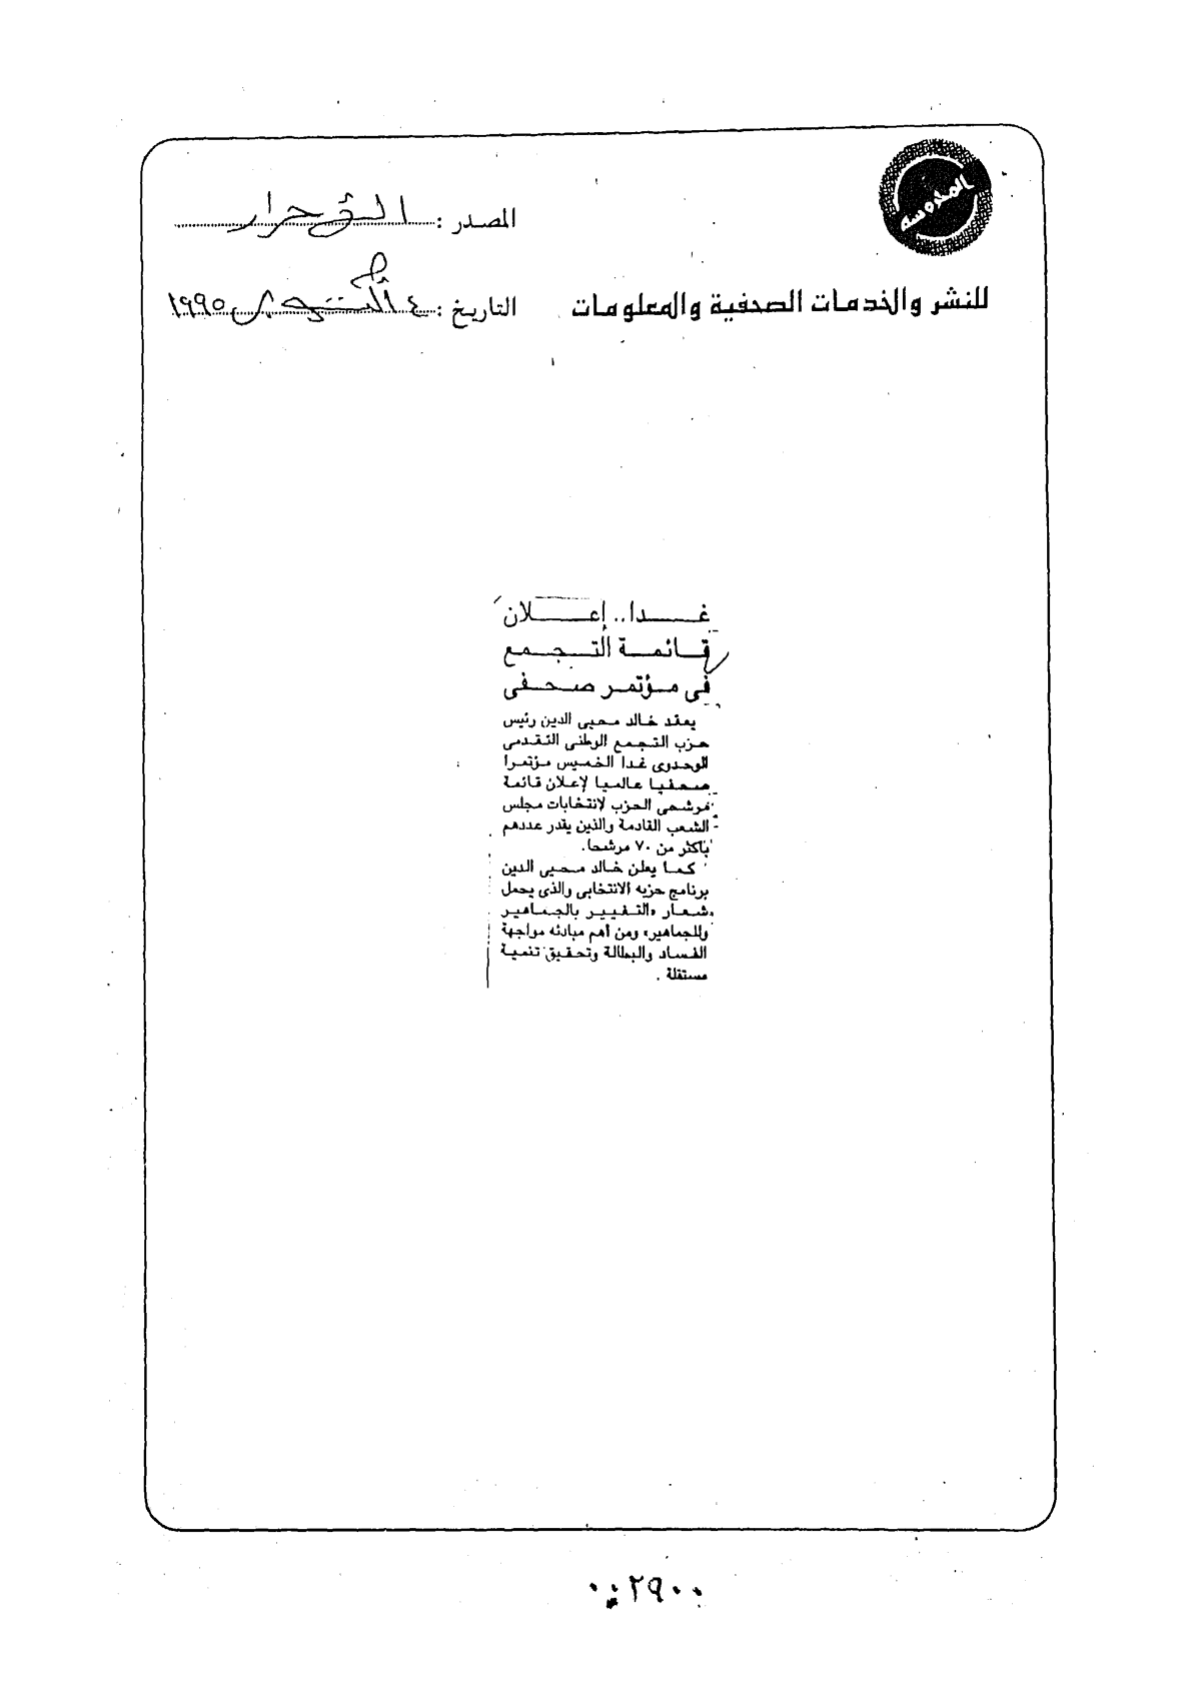 المحروسة
المصدر : الأحرار
للنشر والخدمات الصحفية والمعلومات
التاريخ : ٤ أكتوبر ١٩٩٥
غدا.. إعلان
قائمة التجمع
فى مؤتمر صحفى
يعقد خالد محيى الدين رئيس
حزب التجمع الوطنى التقدمى
الوحدوى غدا الخميس مؤتمرا
صحفيا عالميا لإعلان قائمة
مرشحى الحزب لانتخابات مجلس
الشعب القادمة والذين يقدر عددهم
بأكثر من ٧٠ مرشحا.
كما يعلن خالد محيى الدين
برنامج حزبه الانتخابى والذى يحمل
شعار «التغيير بالجماهير
وللجماهير» ومن أهم مبادئه مواجهة
الفساد والبطالة وتحقيق تنمية
مستقلة .